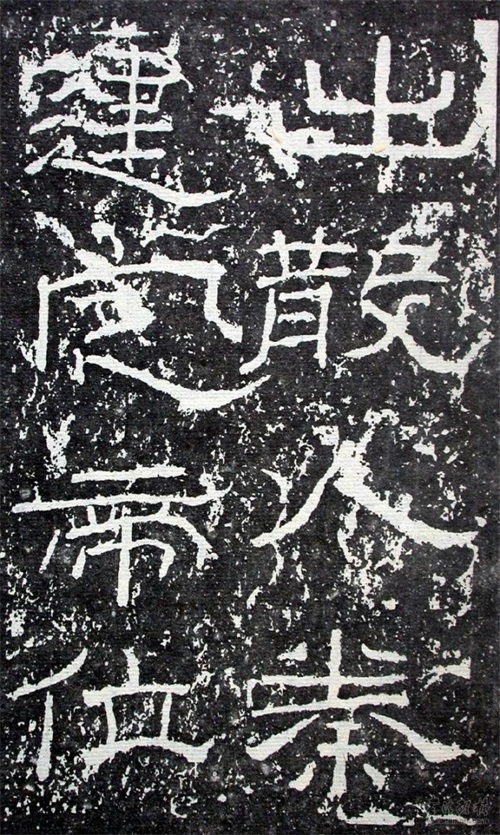 出散入秦
建定帝位